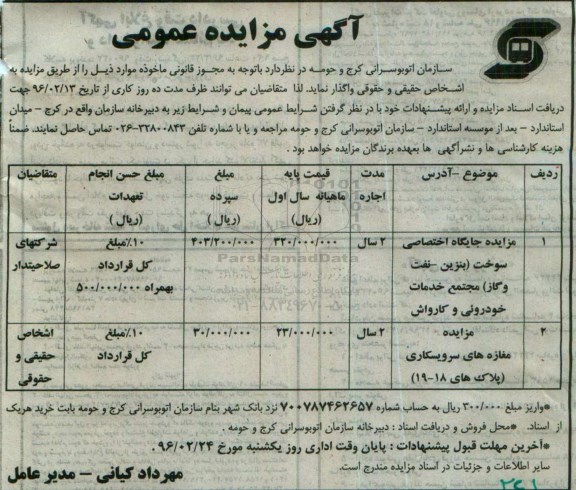 آگهی مزایده عمومی
سازمان اتوبوسرانی کرج و حومه در نظردارد باتوجه به مجوز قانونی ماخوذه موارد ذیل را از طریق مزایده به
اشخاص حقیقی و حقوقی واگذار نماید. لذا متقاضیان می توانند ظرف مدت ده روز کاری از تاریخ ۹۶/۰۲/۱۳ جهت
دریافت اسناد مزایده و ارائه پیشنهادات خود با در نظر گرفتن شرایط عمومی پیمان و شرایط زیر به دبیرخانه سازمان واقع در کرج – میدان
استاندارد – بعد از موسسه استاندارد – سازمان اتوبوسرانی کرج و حومه مراجعه و یا با شماره تلفن ۳۲۸۰۰۸۴۳-۰۲۶ تماس حاصل نمایند. ضمناً
هزینه کارشناسی ها و نشرآگهی ها بعهده برندگان مزایده خواهد بود.
ردیف موضوع –آدرس مدت اجاره قیمت پایه ماهیانه سال اول (ریال) مبلغ سپرده (ریال) مبلغ حسن انجام تعهدات (ریال) متقاضیان
۱ مزایده جایگاه اختصاصی ۲ سال ۳۲۰/۰۰۰/۰۰۰ ۴۰۳/۲۰۰/۰۰۰ ۱۰٪مبلغ شرکتهای
سوخت (بنزین –نفت کل قرارداد صلاحیتدار
وگاز) مجتمع خدمات بهمراه ۵۰۰/۰۰۰/۰۰۰
خودروئی و کارواش
ParsNamadData
۲ مزایده ۲ سال ۲۳/۰۰۰/۰۰۰ ۳۰/۰۰۰/۰۰۰ ۱۰٪مبلغ اشخاص
مغازه های سرویسکاری کل قرارداد حقیقی و
(پلاک های ۱۸-۱۹) حقوقی
*واریز مبلغ ۳۰۰/۰۰۰ ریال به حساب شماره ۷۰۰۷۸۷۴۶۲۶۵۷ نزد بانک شهر بنام سازمان اتوبوسرانی کرج و حومه بابت خرید هریک
از اسناد. *محل فروش و دریافت اسناد : دبیرخانه سازمان اتوبوسرانی کرج و حومه .
*آخرین مهلت قبول پیشنهادات : پایان وقت اداری روز یکشنبه مورخ ۹۶/۰۲/۲۴.
سایر اطلاعات و جزئیات در اسناد مزایده مندرج است.
مهرداد کیانی – مدیر عامل